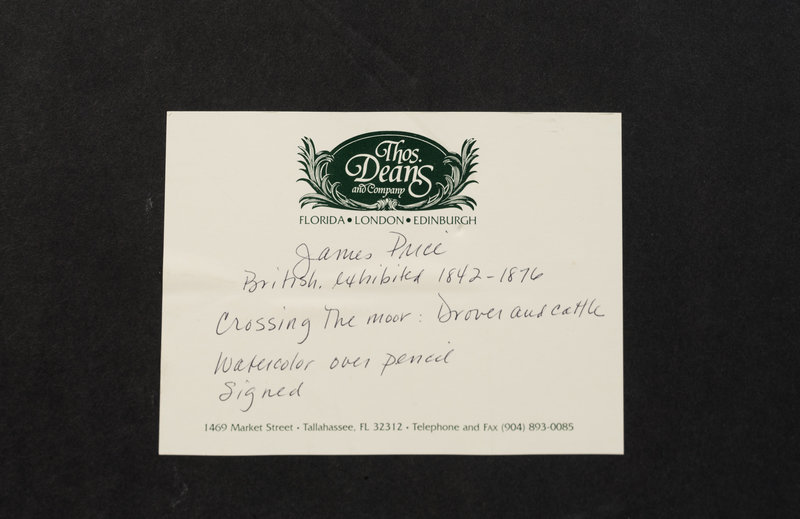 Thos.
Deans
and Company
FLORIDA • LONDON • EDINBURGH
James Price
British, exhibited 1842-1876
Crossing The moor: Drover and cattle
Watercolor over pencil
Signed
1469 Market Street • Tallahassee, FL 32312 • Telephone and FAX (904) 893-0085